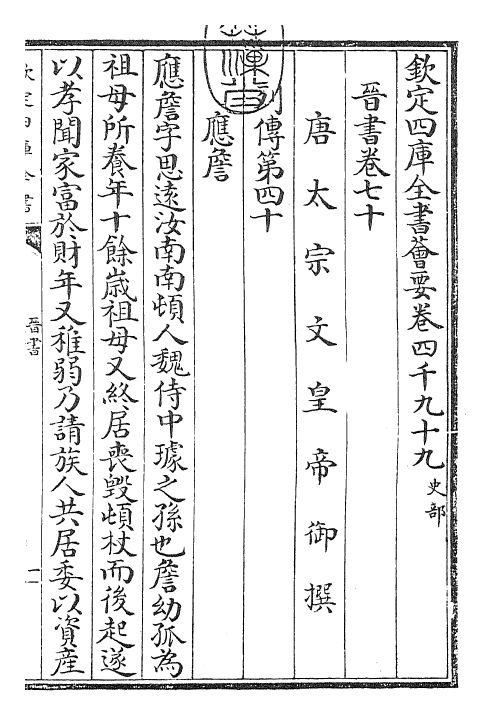 欽定四庫全書薈要卷四千九十九 史部
晉書卷七十
唐太宗文皇帝御撰
列傳第四十
應詹
應詹字思逺汝南南頓人魏侍中璩之孫也詹幼孤為
祖母所養年十餘歳祖母又終居喪毁頓杖而後起遂
以孝聞家富於財年又稚弱乃請族人共居委以資産
欽定四庫全書
晉書